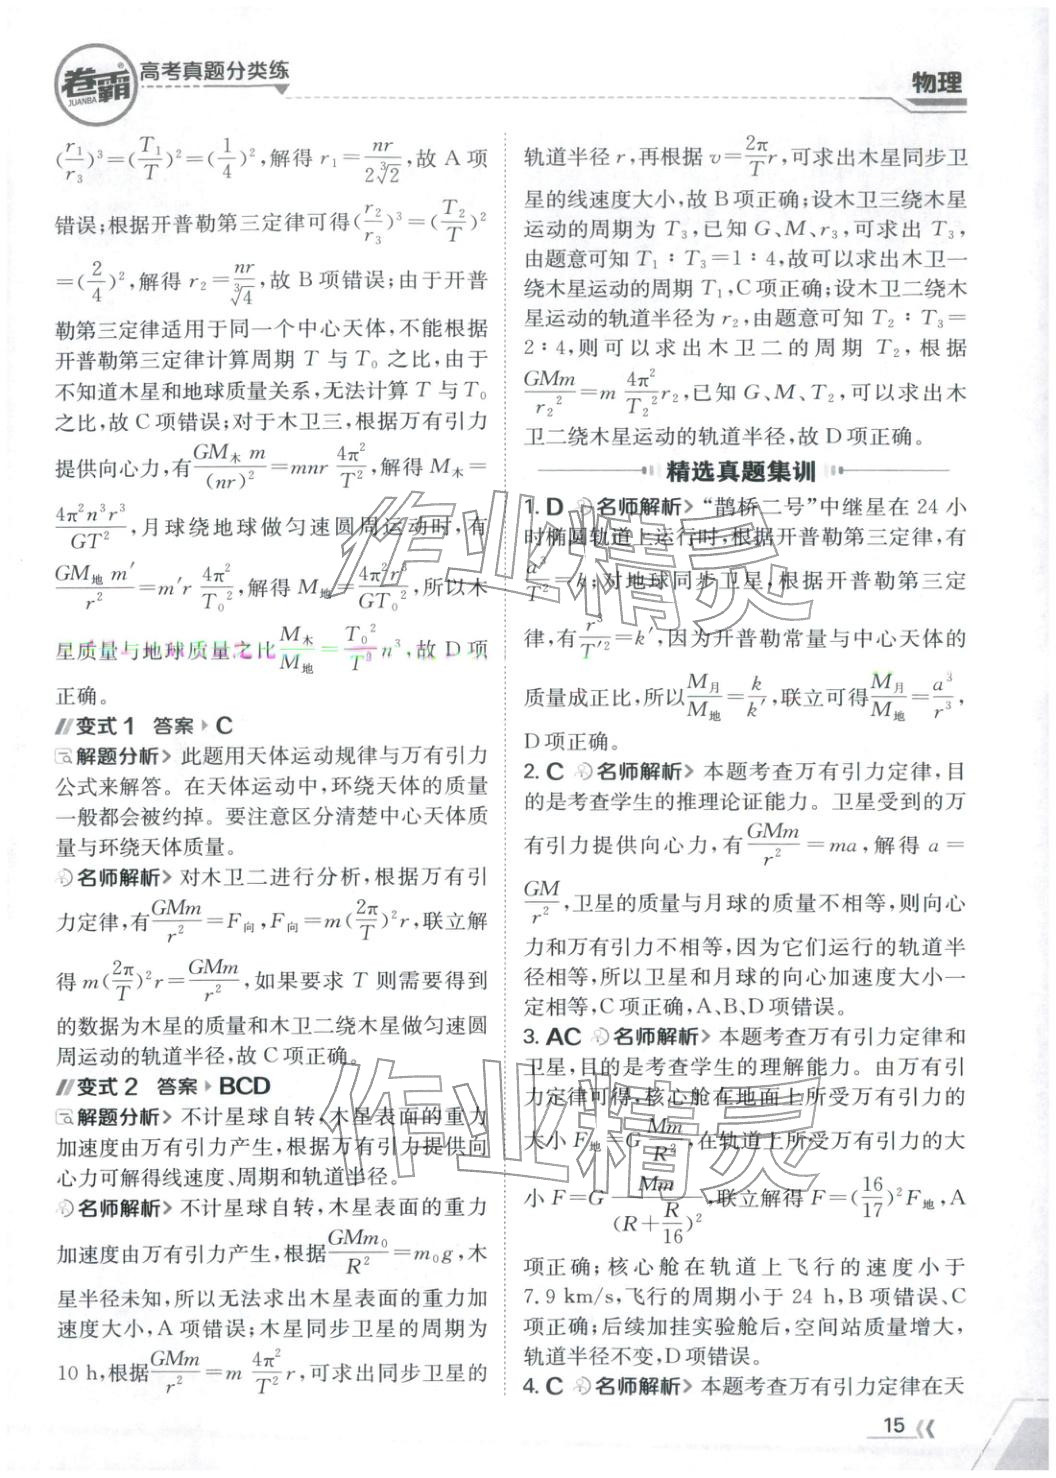 卷霸
JUANBA
高考真题分类练
物理
(r₁/r₃)³=(T₁/T)²=(1/4)²,解得 r₁=nr/(2∛2),故 A 项
错误;根据开普勒第三定律可得(r₂/r₃)³=(T₂/T)²
=(2/4)²,解得 r₂=nr/∛4,故 B 项错误;由于开普
勒第三定律适用于同一个中心天体,不能根据
开普勒第三定律计算周期 T 与 T₀ 之比,由于
不知道木星和地球质量关系,无法计算 T 与 T₀
之比,故 C 项错误;对于木卫三,根据万有引力
提供向心力,有GM木 m/(nr)²=mnr 4π²/T²,解得 M木=
4π²n³r³/GT²,月球绕地球做匀速圆周运动时,有
GM地 m′/r²=m′r 4π²/T₀²,解得 M地=4π²r³/GT₀²,所以木
星质量与地球质量之比M木/M地=T₀²/T² n³,故 D 项
正确。
变式 1 答案 C
解题分析 此题用天体运动规律与万有引力
公式来解答。在天体运动中,环绕天体的质量
一般都会被约掉。要注意区分清楚中心天体质
量与环绕天体质量。
名师解析 对木卫二进行分析,根据万有引
力定律,有GMm/r²=F向,F向=m(2π/T)²r,联立解
得 m(2π/T)²r=GMm/r²,如果要求 T 则需要得到
的数据为木星的质量和木卫二绕木星做匀速圆
周运动的轨道半径,故 C 项正确。
变式 2 答案 BCD
解题分析 不计星球自转,木星表面的重力
加速度由万有引力产生,根据万有引力提供向
心力可解得线速度、周期和轨道半径。
名师解析 不计星球自转,木星表面的重力
加速度由万有引力产生,根据GMm₀/R²=m₀g,木
星半径未知,所以无法求出木星表面的重力加
速度大小,A 项错误;木星同步卫星的周期为
10 h,根据GMm/r²=m 4π²/T² r,可求出同步卫星的
轨道半径 r,再根据 v=2π/T r,可求出木星同步卫
星的线速度大小,故 B 项正确;设木卫三绕木星
运动的周期为 T₃,已知 G、M、r₃,可求出 T₃,
由题意可知 T₁∶T₃=1∶4,故可以求出木卫一
绕木星运动的周期 T₁,C 项正确;设木卫二绕木
星运动的轨道半径为 r₂,由题意可知 T₂∶T₃=
2∶4,则可以求出木卫二的周期 T₂,根据
GMm/r₂²=m 4π²/T₂² r₂,已知 G、M、T₂,可以求出木
卫二绕木星运动的轨道半径,故 D 项正确。
精选真题集训
1. D 名师解析 “鹊桥二号”中继星在 24 小
时椭圆轨道上运行时,根据开普勒第三定律,有
a³/T²=k;对地球同步卫星,根据开普勒第三定
律,有r³/T′²=k′,因为开普勒常量与中心天体的
质量成正比,所以M月/M地=k/k′,联立可得M月/M地=a³/r³,
D 项正确。
2. C 名师解析 本题考查万有引力定律,目
的是考查学生的推理论证能力。卫星受到的万
有引力提供向心力,有GMm/r²=ma,解得 a=
GM/r²,卫星的质量与月球的质量不相等,则向心
力和万有引力不相等,因为它们运行的轨道半
径相等,所以卫星和月球的向心加速度大小一
定相等,C 项正确,A、B、D 项错误。
3. AC 名师解析 本题考查万有引力定律和
卫星,目的是考查学生的理解能力。由万有引
力定律可得,核心舱在地面上所受万有引力的
大小 F地=G Mm/R²,在轨道上所受万有引力的大
小 F=G Mm/(R+R/16)²,联立解得 F=(16/17)²F地,A
项正确;核心舱在轨道上飞行的速度小于
7.9 km/s,飞行的周期小于 24 h,B 项错误、C
项正确;后续加挂实验舱后,空间站质量增大,
轨道半径不变,D 项错误。
4. C 名师解析 本题考查万有引力定律在天
15
作业精灵
作业精灵